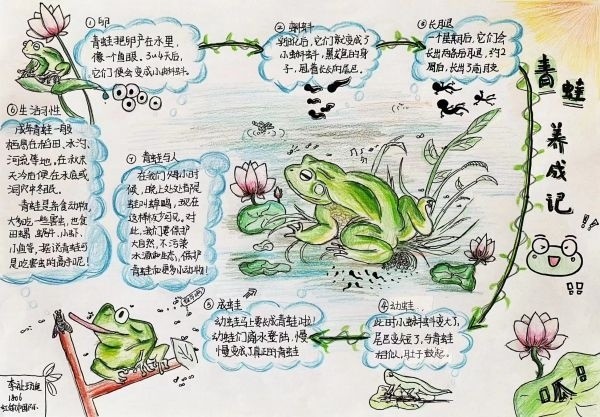 青蛙养成记
①卵
青蛙把卵产在水里,
像一个鱼眼。3~4天后,
它们便会变成小蝌蚪。
②蝌蚪
孵化后,它们就变成了
小蝌蚪,黑褐色的身
子,甩着长长的尾巴。
③长后腿
一个星期后,它们会
长出两条后腿,约2
周后,长出了前肢
④幼蛙
此时小蝌蚪变大了,
尾巴变短了,与青蛙
相似,肚子鼓起。
⑤成蛙
幼蛙马上要长成青蛙啦!
幼蛙们离水登陆,慢
慢变成了真正的青蛙
⑥生活习性
成年青蛙一般
栖息在稻田、水沟、
河流等地,在秋末
天冷后便在水底或
洞穴中冬眠。
青蛙是杂食动物,
大多吃一些害虫,也食
田螺、蜗牛、小虾、
小鱼等,
是吃害虫的高手呢!
⑦青蛙与人
在我们小时
候,晚上处处都是
蛙叫蝉鸣,现在
这样很少见。对
此,我们要保护
大自然,不污染
水源和生态,保护
青蛙和更多小动物!
呱!呱!
1806